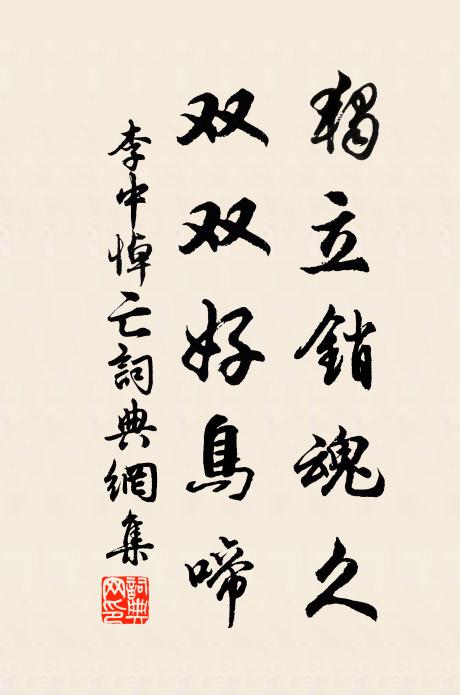 獨立銷魂久
双双好鳥啼
李中悼亡詞典網集
詞典網印